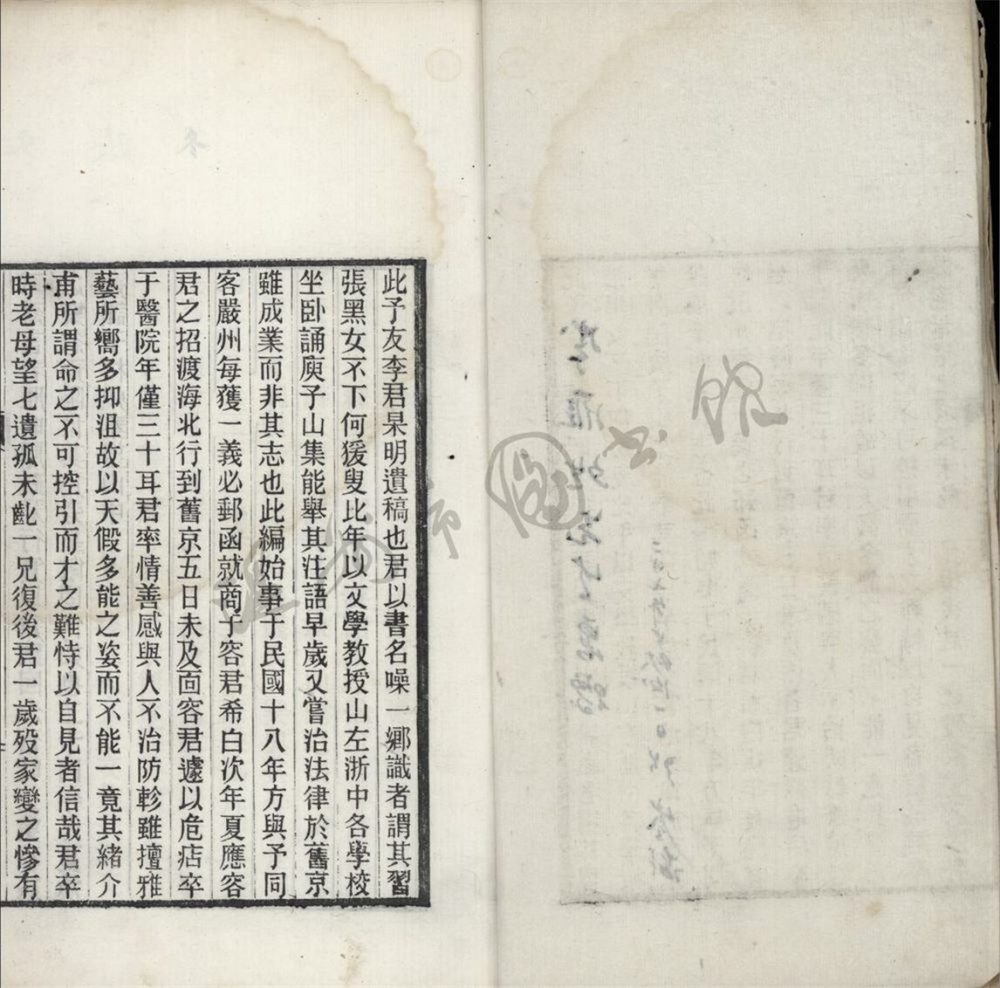 此予友李君杲明遺稿也君以書名噪一鄉識者謂其習
張黑女不下何猨叟比年以文學教授山左浙中各學校
坐卧誦庾子山集能舉其注語早歲又嘗治法律於舊京
雖成業而非其志也此編始事于民國十八年方與予同
客嚴州每獲一義必郵函就商于容君希白次年夏應容
君之招渡海北行到舊京五日未及面容君遽以危痁卒
于醫院年僅三十耳君率情善感與人不治防畛雖擅雅
藝所嚮多抑沮故以天假多能之姿而不能一竟其緒介
甫所謂命之不可控引而才之難恃以自見者信哉君卒
時老母望七遺孤未齔一兄復後君一歲歿家變之慘有
市圖書館